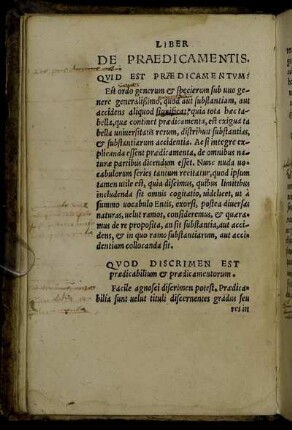 LIBER
DE PRAEDICAMENTIS.
QVID EST PRÆDICAMENTVM?
Est ordo generum & specierum sub uno ge
nere generalissimo, quod aut substantiam, aut
accidens aliquod significat: quia tota hæc ta-
bella, quæ continet prædicamenta, est exigua ta
bella uniuersitatis rerum, distributa substantias,
& substantiarum accidentia. Ac si integre ex-
plicanda essent prædicamenta, de omnibus na-
turæ partibus dicendum esset. Nunc nuda uo-
cabulorum series tantum recitatur, quod ipsum
tamen utile est, quia discimus, quibus limitibus
includenda sit omnis cogitatio, uidelicet, ut à
summo uocabulo Entis, exorsi, postea diuersas
naturas, uelut ramos, consideremus, & quæra-
mus de re proposita, an sit substantia, aut acci-
dens, & in quo ramo substantiarum, aut acci-
dentium collocanda sit.
QVOD DISCRIMEN EST
prædicabilium & prædicamentorum.
Facile agnosci discrimen potest. Prædica-
bilia sunt uelut tituli discernentes gradus seu